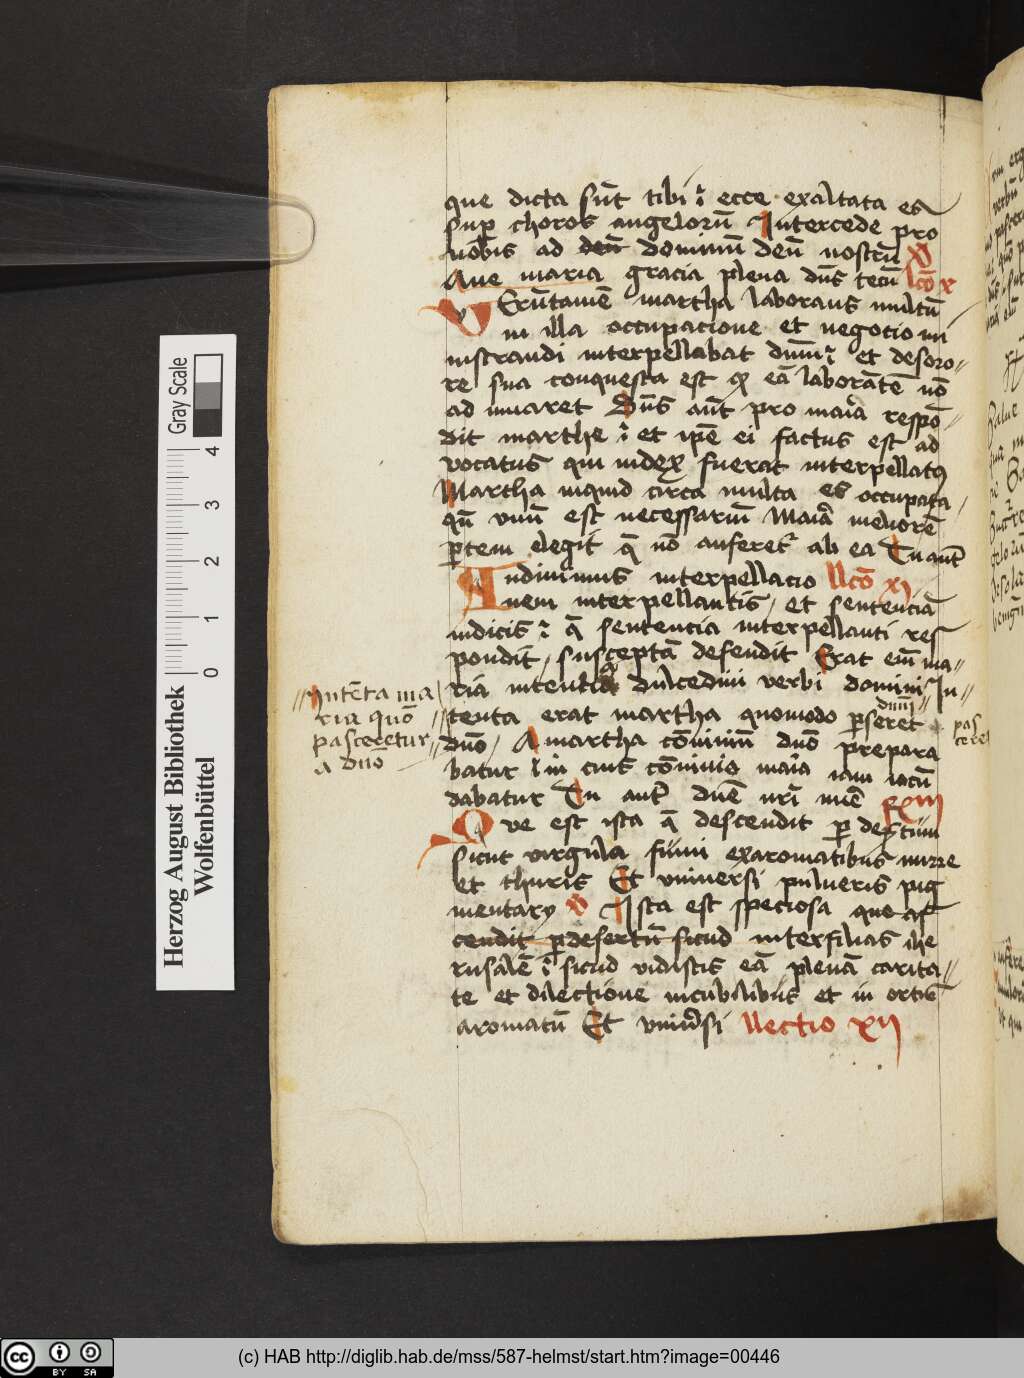 que dicta sūt tibi ⁊ ecce exaltata es
sup choros angelorū Intercede pro
nobis ad deū dominū deū nostrū
Aue maria gracia plena dn̄s tecū lcō x
Erūtamē martha laborans multū
in illa occupacione et negocio mi
nistrandi interpellabat dnm̄ et desoro
re sua conquesta est ꝙ eā laborātē nō
ad iuuaret Dn̄s aūt pro maīa respō
dit marthe ⁊ et ip̄e ei factus est ad
vocatus qui iudex fuerat interpellatꝰ
Martha inquid circa multa es occupata
qn̄ vnū est necessariū Maīa meliorē
ꝑtem elegit q̄ nō auferet ab ea Tu aūt
Audiuimus interpellacio llcō xi
nem interpellantis et sentenciā
iudicis ⁊ q̄ sentencia interpellanti res
pondit susceptā defendit Erat em̄ ma
ria intenta dulcedini verbi domini In
tenta erat martha quomodo ꝑseret
dnm̄
duō A martha cōuiuiū dnō prepara
batur in cuiꝰ cōuiuio maīa iam iacū
dabatur Tu aūt dn̄e nrī mīe Rm
Que est ista q̄ descendit ꝑ deꝑtum
sicut virgula fumi exaromatibus mirre
et thuris Et vniuersi pulueris pig
mentary Ista est speciosa que as
cendit ꝑdesertū sicud inter filias ihe
rusalē ⁊ sicud vidistis eā plenā carita
te et dilectione incubilibus et in ortis
aromatū Et vniūsi llectio xii
Intēta ma
ria quō
pasceretur
a dn̄o
pas
ceret
Herzog August Bibliothek
Wolfenbüttel
Gray Scale
0 1 2 3 4
cc BY SA
(c) HAB http://diglib.hab.de/mss/587-helmst/start.htm?image=00446